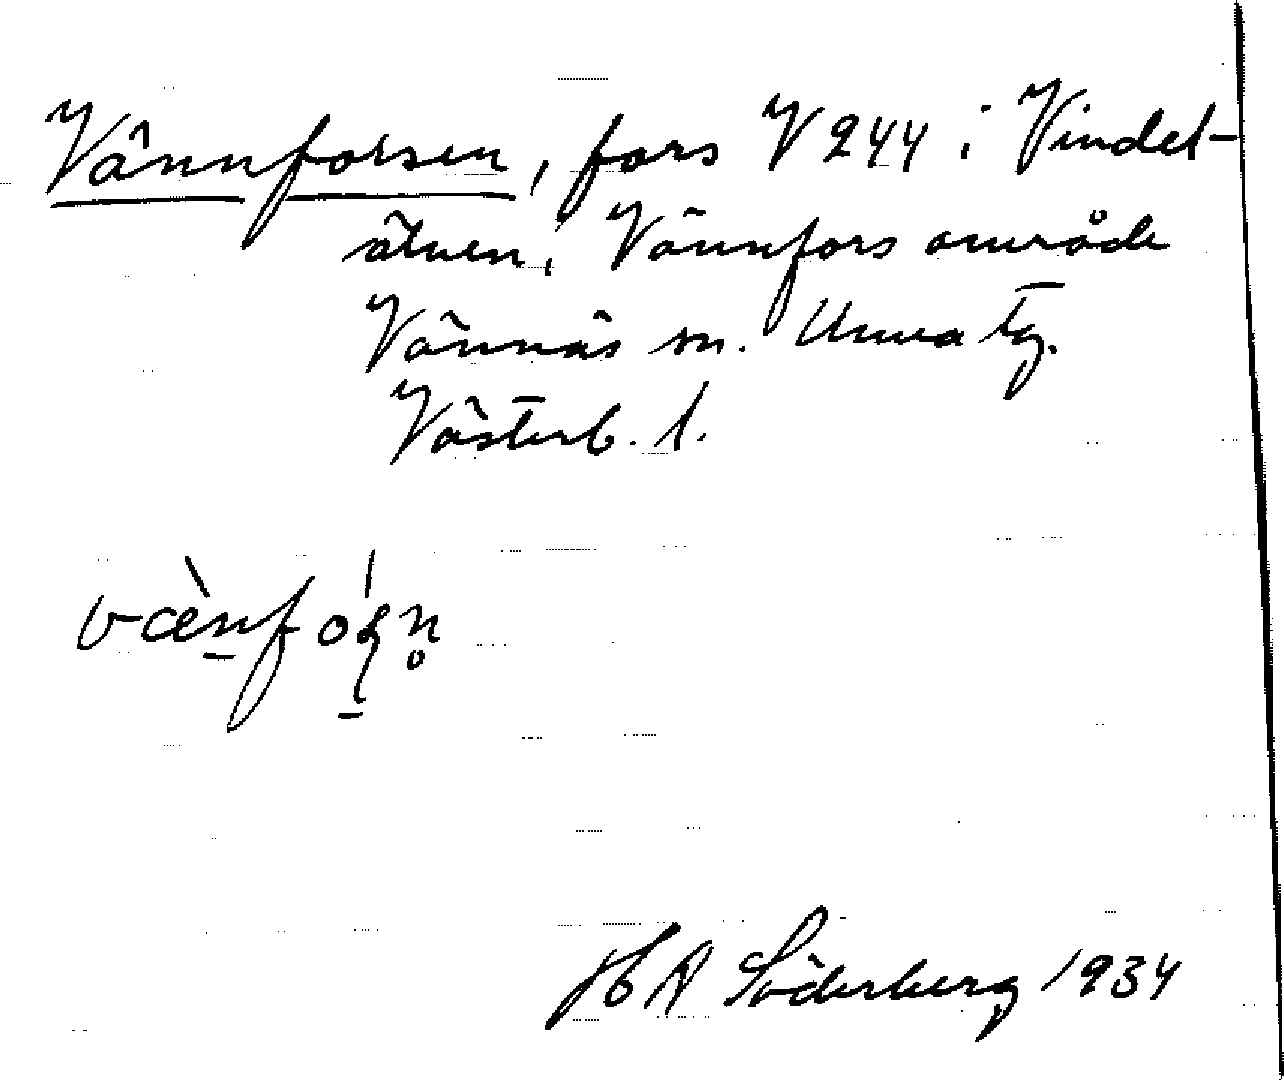 Vännforsen, fors V 244 i Vindel-
älven, Vännfors område
Vännäs sn. Umeå tg.
Västerb. l.
H A Söderberg 1934